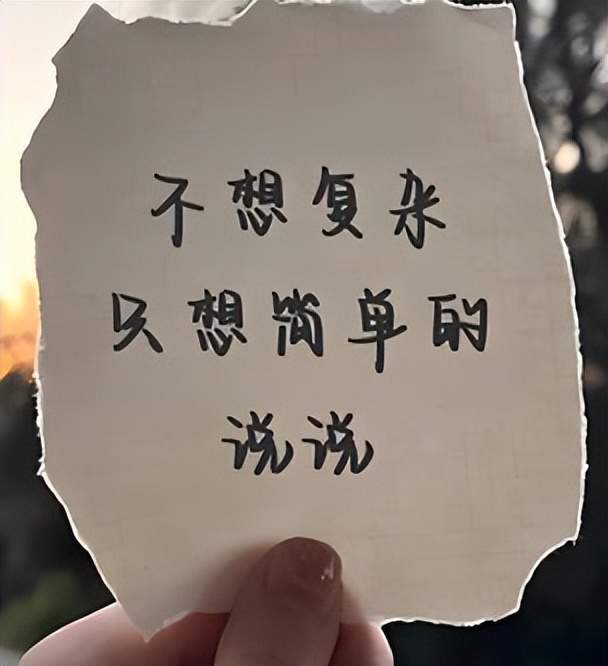 不想复杂
只想简单的
说说